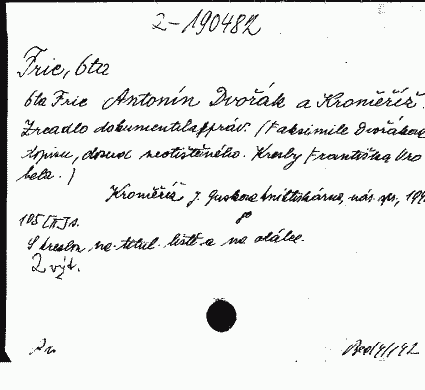 2-190482
Fric, Ota
Ota Fric Antonín Dvořák a Kroměříž.
Zrcadlo dokument. a zpráv. (Faksimile Dvořákova
dopisu, dosud neotištěného. Kresby Františka Vro
bela.)
Kroměříž, J. Guskova knihtiskárna, nár. spr., 194
105 [II] s.
S kresbou na titul. listě a na obálce.
2 výt.